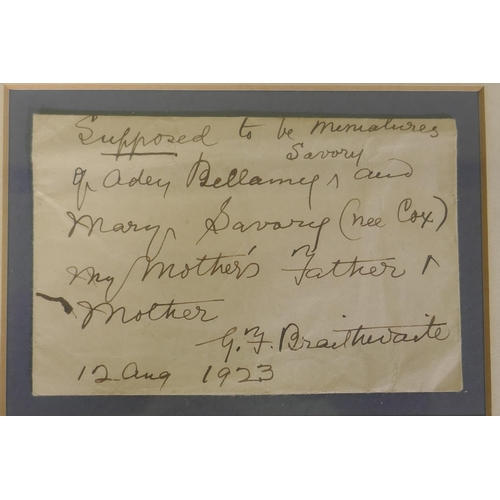 Supposed to be miniatures
of Adey Bellamy ^ Savory and
Mary Savory (nee Cox)
my Mother's Father &
Mother
G. F. Braithwaite
12 Aug 1923